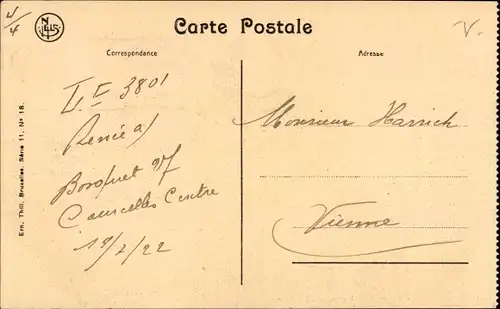 4/4
NELS
Carte Postale
V.
Correspondance
Adresse
3801
Monsieur Harrich
Bosquet 97
Courcelles Centre
Vienne
19/2/22
Ern. Thill, Bruxelles, Série 11, No 18.